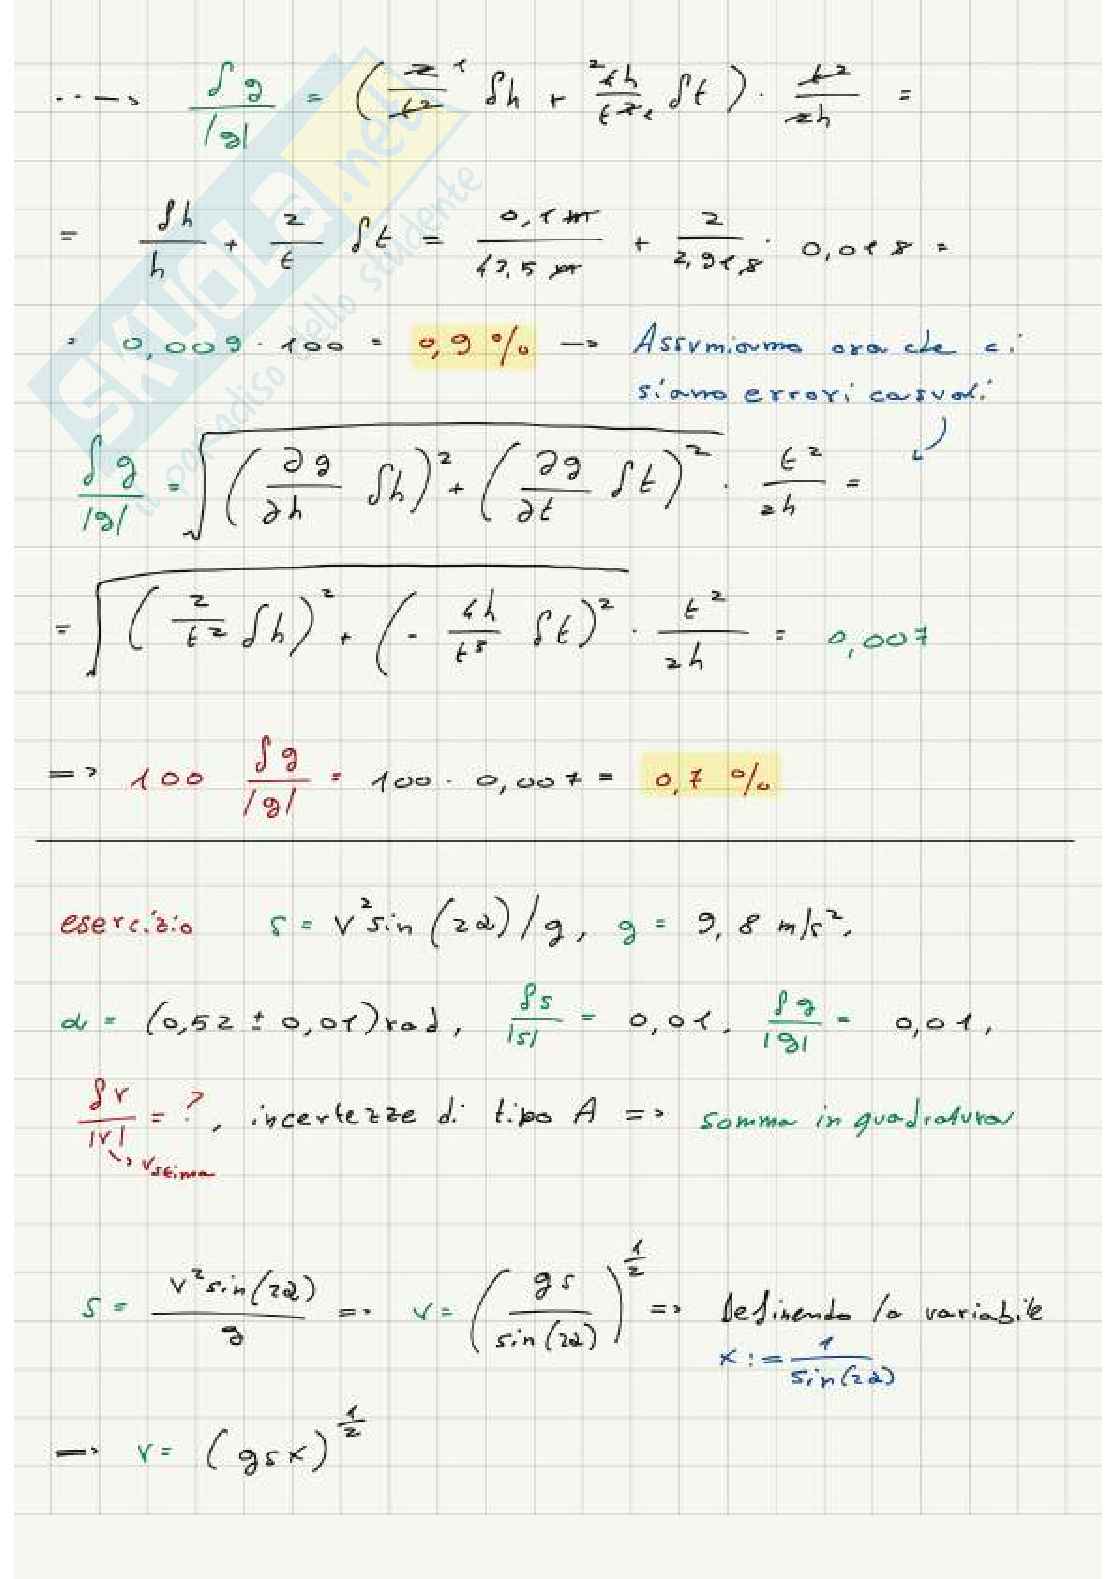 ...→ δg/|g| = (2/t² δh + 4h/t³ δt) · t²/2h =
= δh/h + 2/t δt = 0,1 m/12,5 m + 2/2,918 · 0,018 =
= 0,009 · 100 = 0,9 % → Assumiamo ora che ci
siano errori casuali
δg/|g| = √((∂g/∂h δh)² + (∂g/∂t δt)²) · t²/2h =
= √((2/t² δh)² + (- 4h/t³ δt)²) · t²/2h = 0,007
=> 100 δg/|g| = 100 · 0,007 = 0,7 %
esercizio s = v² sin (2α) / g, g = 9,8 m/s²,
α = (0,52 ± 0,01) rad, δs/|s| = 0,01, δg/|g| = 0,01,
δv/|v| = ?, incertezze di tipo A => somma in quadratura
→ v stima
s = v² sin(2α)/g => v = (gs/sin(2α))^1/2 => definendo la variabile
x := 1/sin(2α)
→ v = (gsx)^1/2
SKUOLA.net
il paradiso dello studente